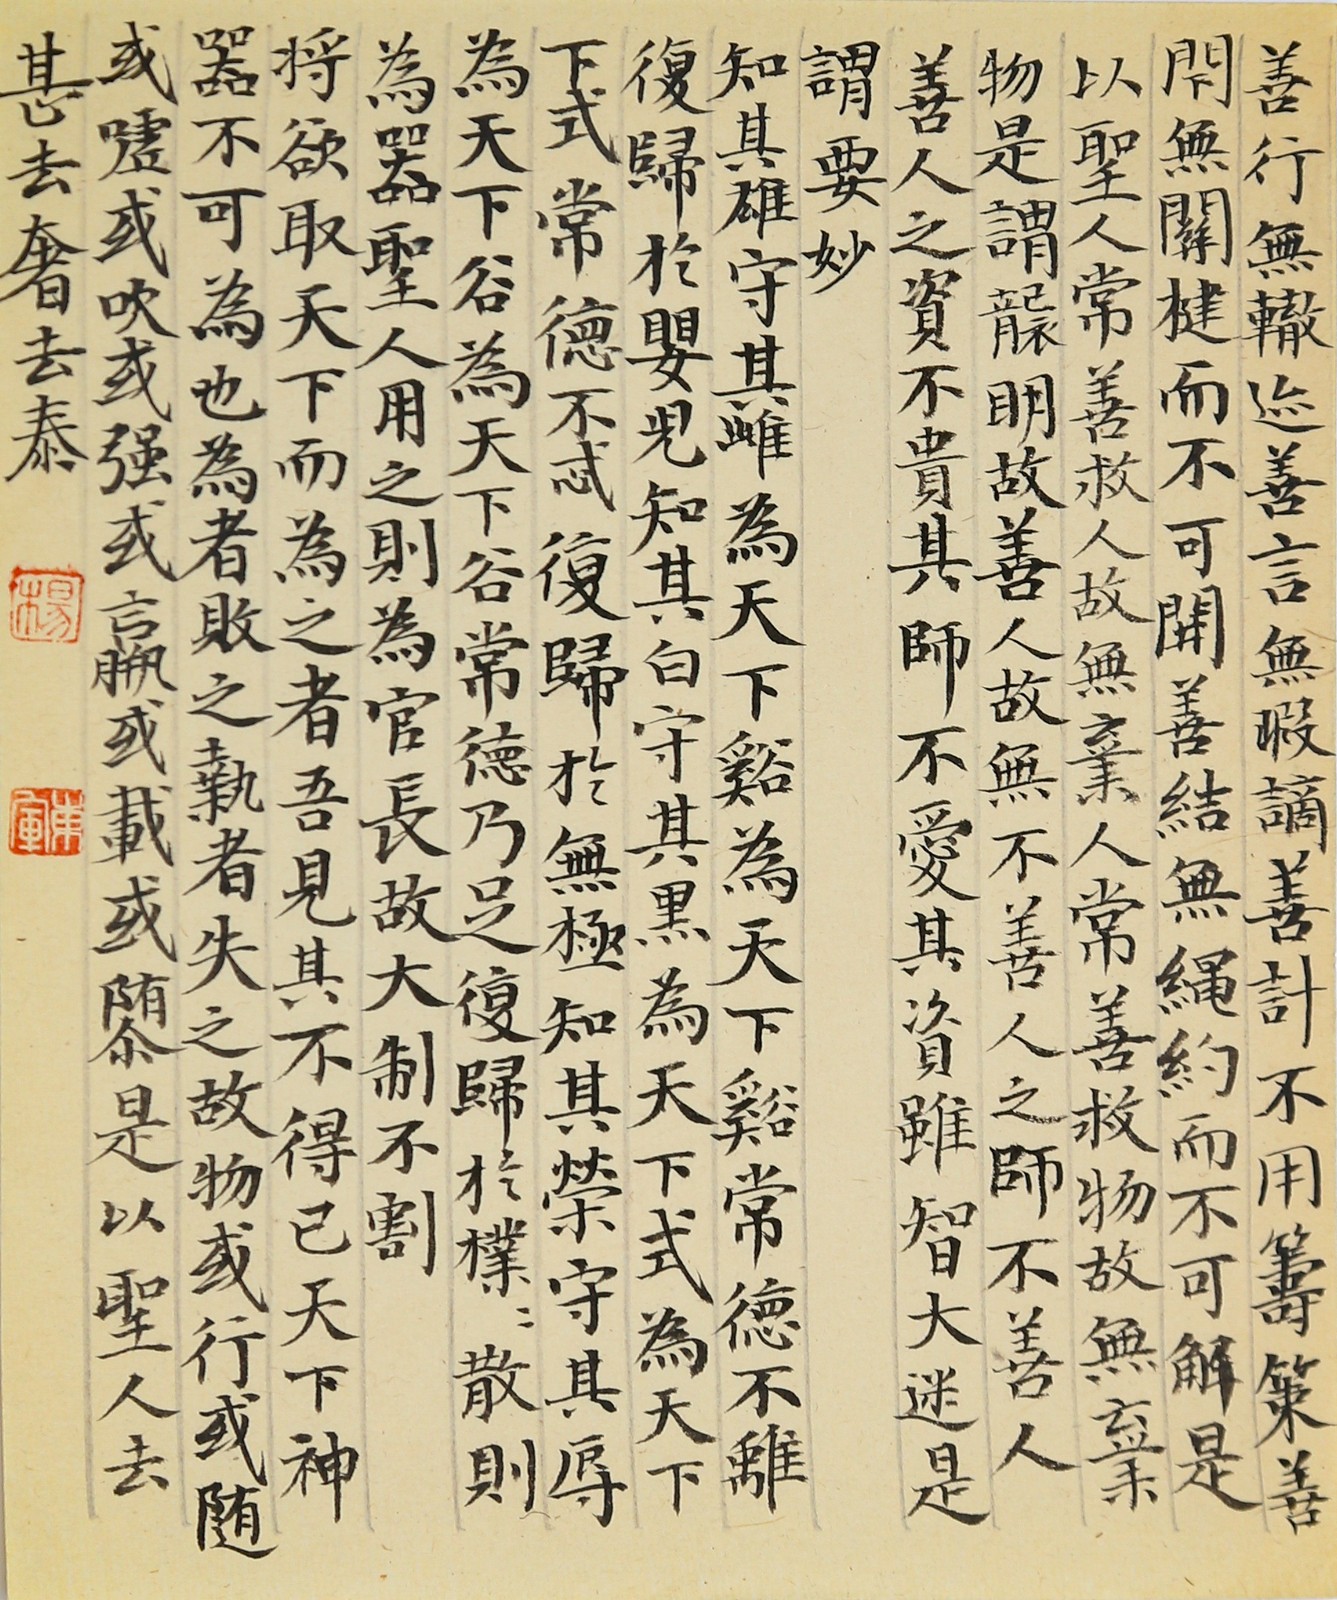 善行無轍迹善言無瑕謫善計不用籌策善
閇無關楗而不可開善結無繩約而不可解是
以聖人常善救人故無棄人常善救物故無棄
物是謂襲明故善人故無不善人之師不善人
善人之資不貴其師不愛其資雖智大迷是
謂要妙
知其雄守其雌為天下谿為天下谿常德不離
復歸於嬰兒知其白守其黑為天下式為天下
下式常德不忒復歸於無極知其榮守其辱
為天下谷為天下谷常德乃足復歸於樸〻散則
為器聖人用之則為官長故大制不割
将欲取天下而為之者吾見其不得已天下神
器不可為也為者敗之執者失之故物或行或随
或噓或吹或强或羸或載或隳是以聖人去
甚去奢去泰
楊